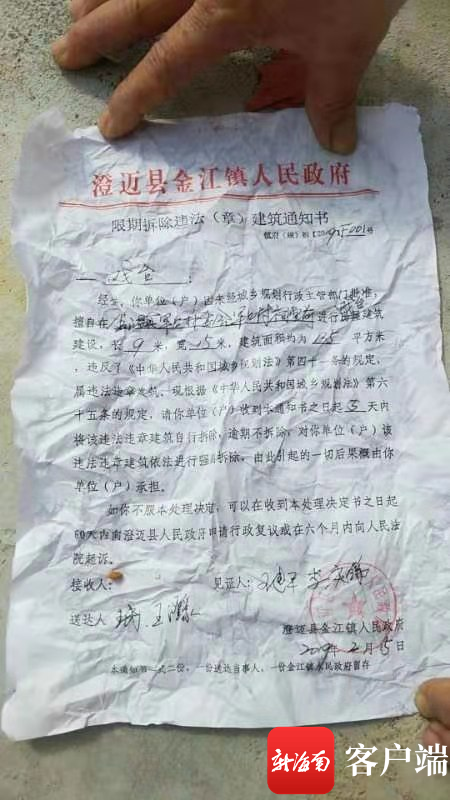 澄迈县金江镇人民政府
限期拆除违法（章）建筑通知书
镇府（规）拆【2019】001号
经查，你单位（户）因未经城乡规划行政主管部门批准，
擅自在 进行
建设，长9米，宽15米，建筑面积约为 平方米
，违反了《中华人民共和国城乡规划法》第四十一条的规定，
属违法违章 现根据《中华人民共和国城乡规划法》第六
十五条的规定，请你单位（户）收到本通知书之日起 天内
将该违法违章建筑自行拆除，逾期不拆除，对你单位（户）该
违法违章建筑依法进行强制拆除，由此引起的一切后果概由你
单位（户）承担。
如你不服本处理决定，可以在收到本处理决定书之日起
60天内向澄迈县人民政府申请行政复议或在六个月内向人民法
院起诉。
接收人： 见证人：
送达人
澄迈县金江镇人民政府
2019年2月15日
本通知书一式二份，一份送达当事人，一份金江镇人民政府留存
新海南 客户端